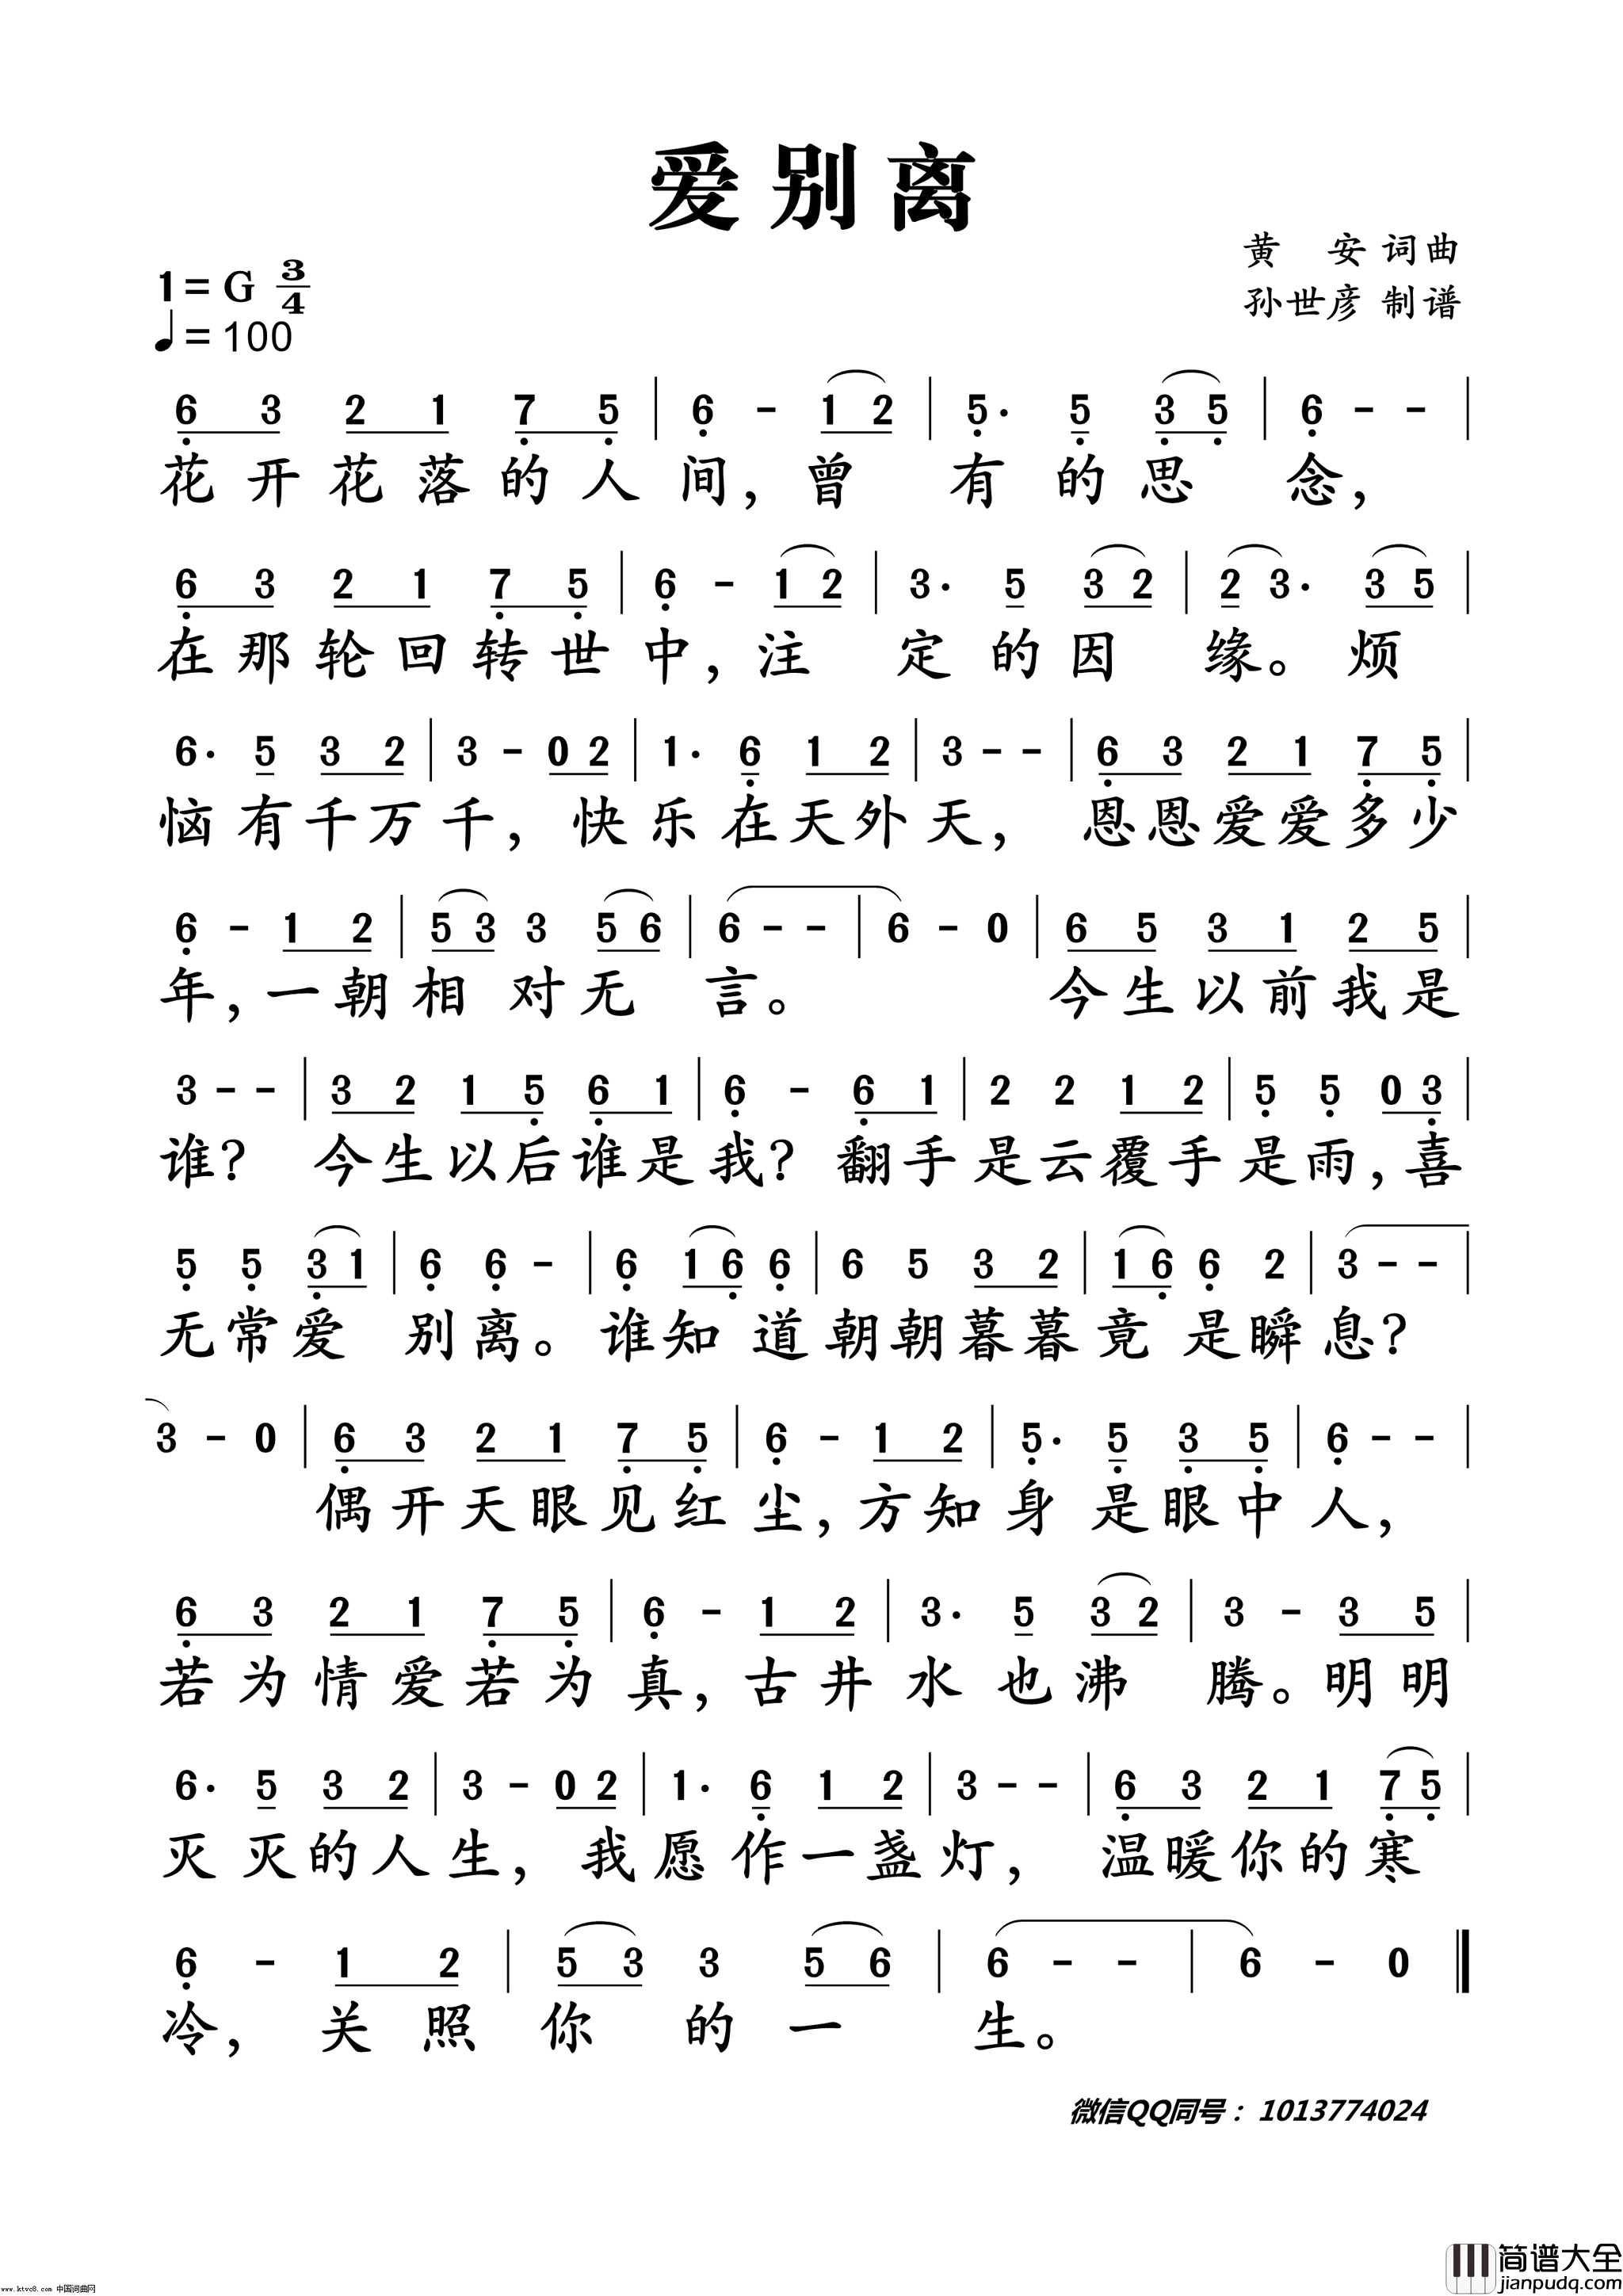 爱别离
黄 安 词曲
孙世彦 制谱
1= G 3/4
♩= 100
6 3 2 1 7 5 | 6 - 1 2 | 5· 5 3 5 | 6 - - |
花开花落的人间，曾有的思念，
6 3 2 1 7 5 | 6 - 1 2 | 3· 5 3 2 | 2 3· 3 5 |
在那轮回转世中，注定的因缘。烦
6· 5 3 2 | 3 - 0 2 | 1· 6 1 2 | 3 - - | 6 3 2 1 7 5 |
恼有千万千，快乐在天外天，恩恩爱爱多少
6 - 1 2 | 5 3 3 5 6 | 6 - - | 6 - 0 | 6 5 3 1 2 5 |
年，一朝相对无言。今生以前我是
3 - - | 3 2 1 5 6 1 | 6 - 6 1 | 2 2 1 2 | 5 5 0 3 |
谁？今生以后谁是我？翻手是云覆手是雨，喜
5 5 3 1 | 6 6 - | 6 1 6 6 | 6 5 3 2 | 1 6 6 2 | 3 - - |
无常爱别离。谁知道朝朝暮暮竟是瞬息？
3 - 0 | 6 3 2 1 7 5 | 6 - 1 2 | 5· 5 3 5 | 6 - - |
偶开天眼见红尘，方知身是眼中人，
6 3 2 1 7 5 | 6 - 1 2 | 3· 5 3 2 | 3 - 3 5 |
若为情爱若为真，古井水也沸腾。明明
6· 5 3 2 | 3 - 0 2 | 1· 6 1 2 | 3 - - | 6 3 2 1 7 5 |
灭灭的人生，我愿作一盏灯，温暖你的寒
6 - 1 2 | 5 3 3 5 6 | 6 - - | 6 - 0 ‖
冷，关照你的一生。
微信QQ同号：1013774024
简谱大全
jianpudq.com
www.ktvc8.com 中国词曲网